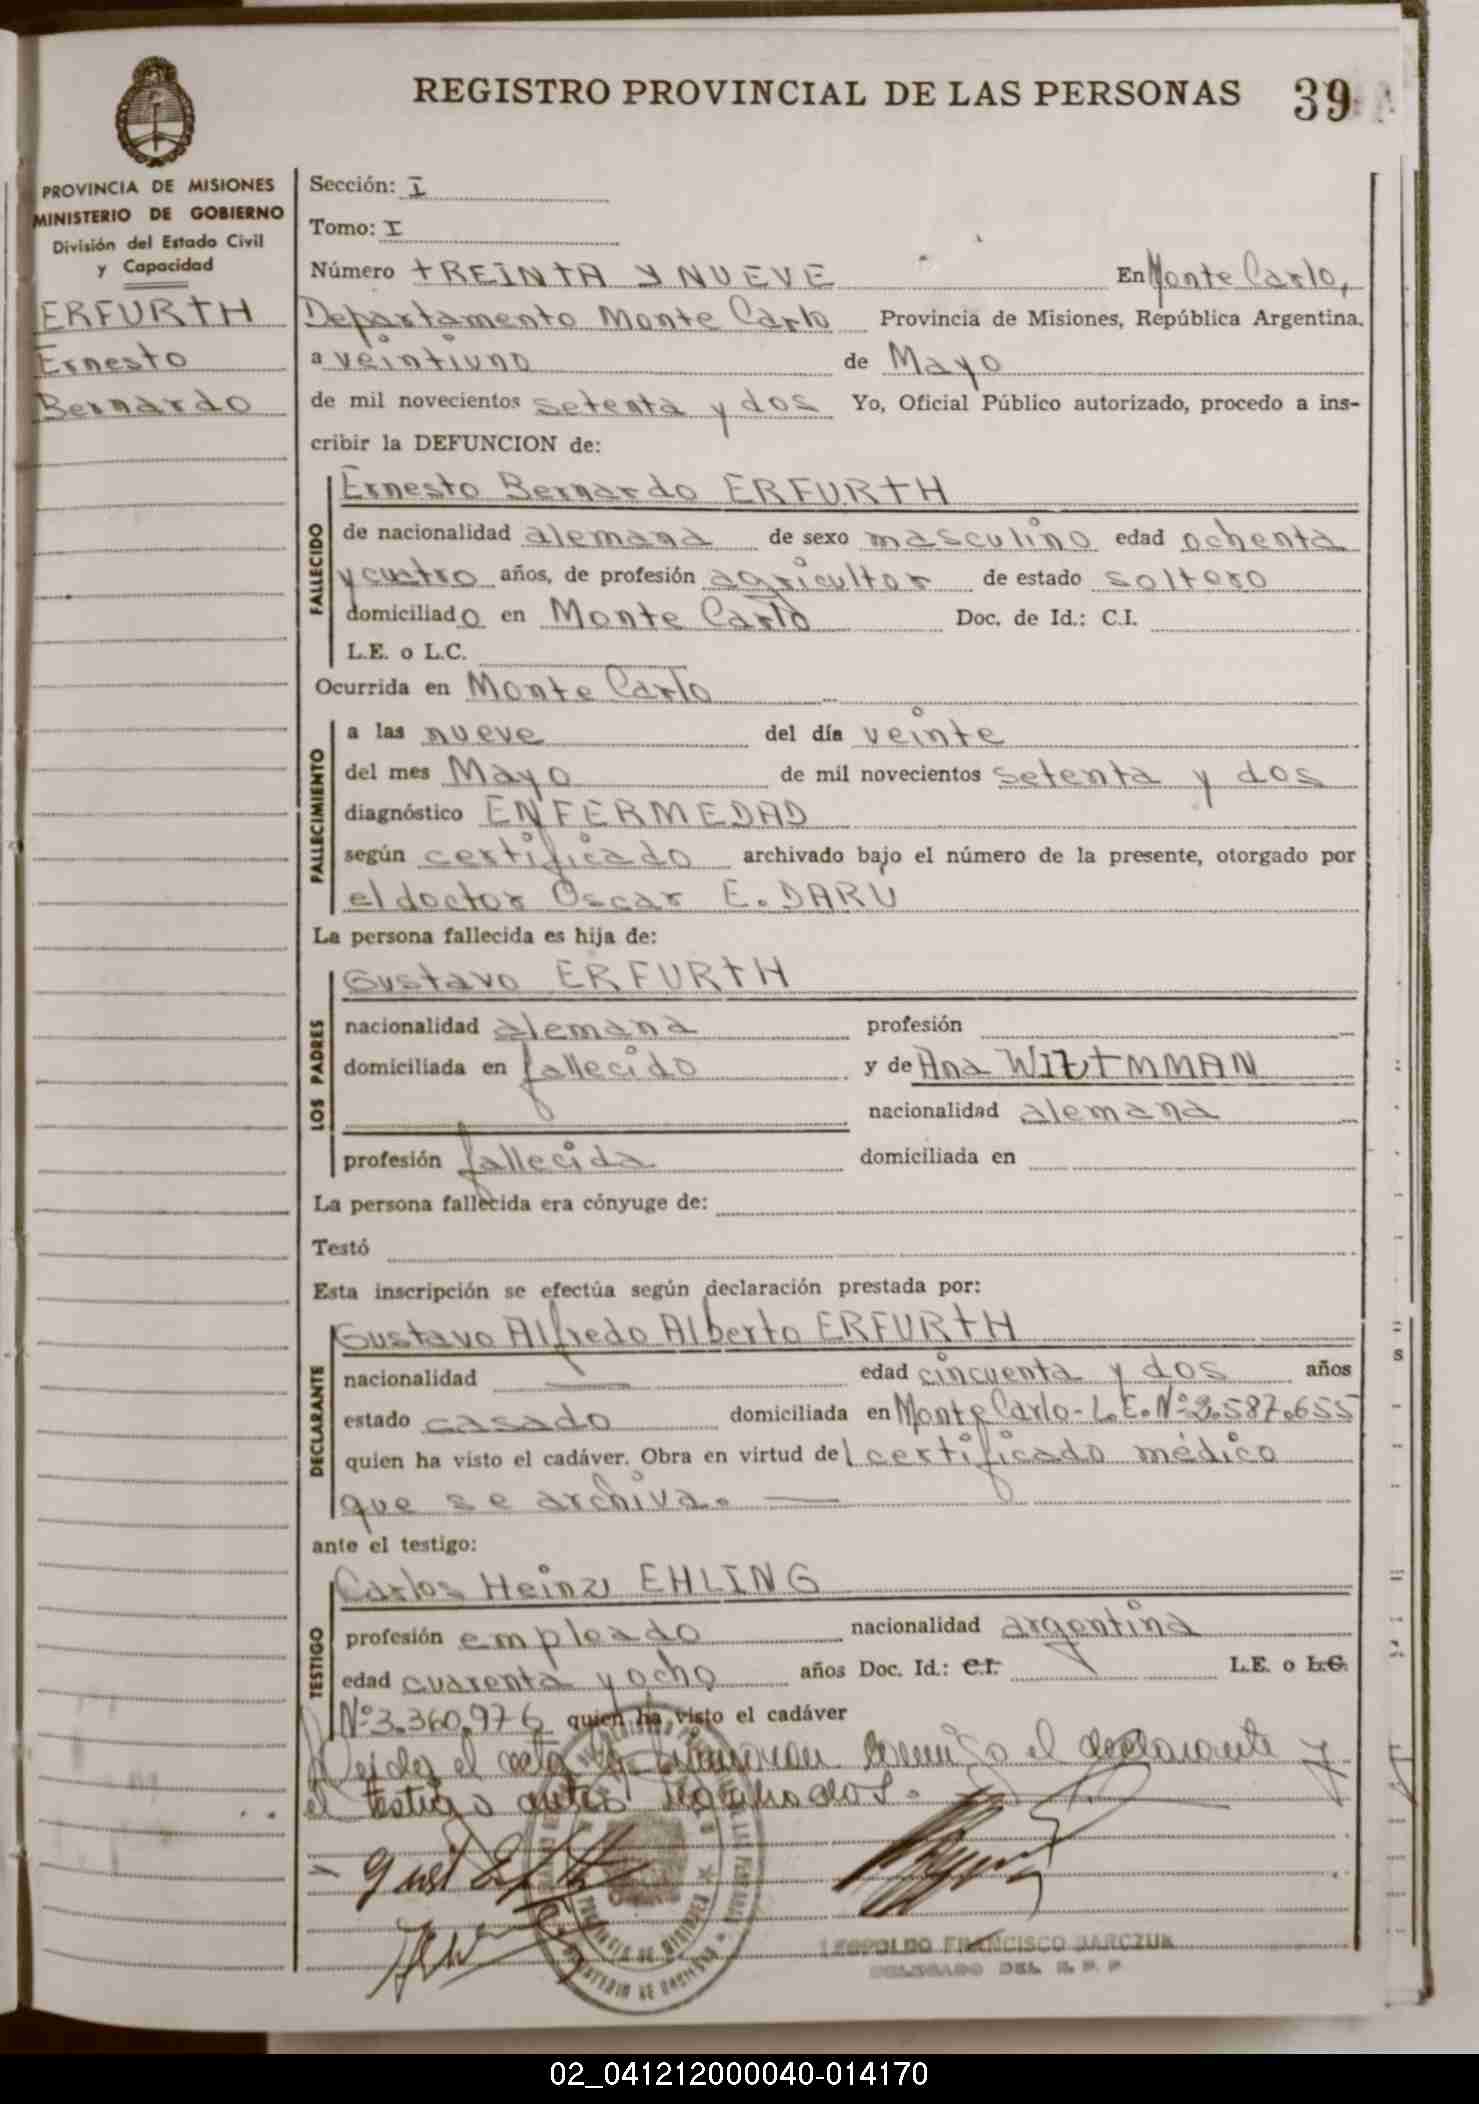 REGISTRO PROVINCIAL DE LAS PERSONAS 39
PROVINCIA DE MISIONES
MINISTERIO DE GOBIERNO
División del Estado Civil
y Capacidad
ERFURTH
Ernesto
Bernardo
Sección: I
Tomo: I
Número TREINTA Y NUEVE En Monte Carlo,
Departamento Monte Carlo Provincia de Misiones, República Argentina.
a veintiuno de Mayo
de mil novecientos setenta y dos Yo, Oficial Público autorizado, procedo a ins-
cribir la DEFUNCION de:
FALLECIDO
Ernesto Bernardo ERFURTH
de nacionalidad alemana de sexo masculino edad ochenta
y cuatro años, de profesión agricultor de estado soltero
domiciliado en Monte Carlo Doc. de Id.: C.I.
L.E. o L.C.
Ocurrida en Monte Carlo
FALLECIMIENTO
a las nueve del día veinte
del mes Mayo de mil novecientos setenta y dos
diagnóstico ENFERMEDAD
según certificado archivado bajo el número de la presente, otorgado por
el doctor Oscar E. DARU
La persona fallecida es hija de:
LOS PADRES
Gustavo ERFURTH
nacionalidad alemana profesión
domiciliada en fallecido y de Ana WITTMMAN
nacionalidad alemana
profesión fallecida domiciliada en
La persona fallecida era cónyuge de:
Testó
Esta inscripción se efectúa según declaración prestada por:
DECLARANTE
Gustavo Alfredo Alberto ERFURTH
nacionalidad — edad cincuenta y dos años
estado casado domiciliada en Monte Carlo - L.E. Nº 2.587.655
quien ha visto el cadáver. Obra en virtud del certificado médico
que se archiva. —
ante el testigo:
TESTIGO
Carlos Heinz EHLING
profesión empleado nacionalidad argentina
edad cuarenta y ocho años Doc. Id.: C.I. L.E. o L.C.
Nº 3.360.976 quien ha visto el cadáver
Leída el acta la firmaron conmigo el declarante y
el testigo antes nombrados.
PROVINCIA DE MISIONES
MINISTERIO DE GOBIERNO
LEOPOLDO FRANCISCO BARCZUK
DELEGADO DEL R. P. P.
02_041212000040-014170